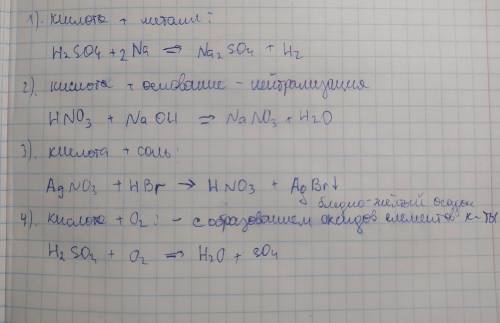 1). кислота + металл:
H2SO4 + 2Na => Na2SO4 + H2
2). кислота + основание - нейтрализация
HNO3 + NaOH => NaNO3 + H2O
3). кислота + соль
AgNO3 + HBr → HNO3 + AgBr↓
бледно-жёлтый осадок
4). кислота + O2: - с образованием оксидов елементов к-ты
H2SO4 + O2 => H2O + SO4